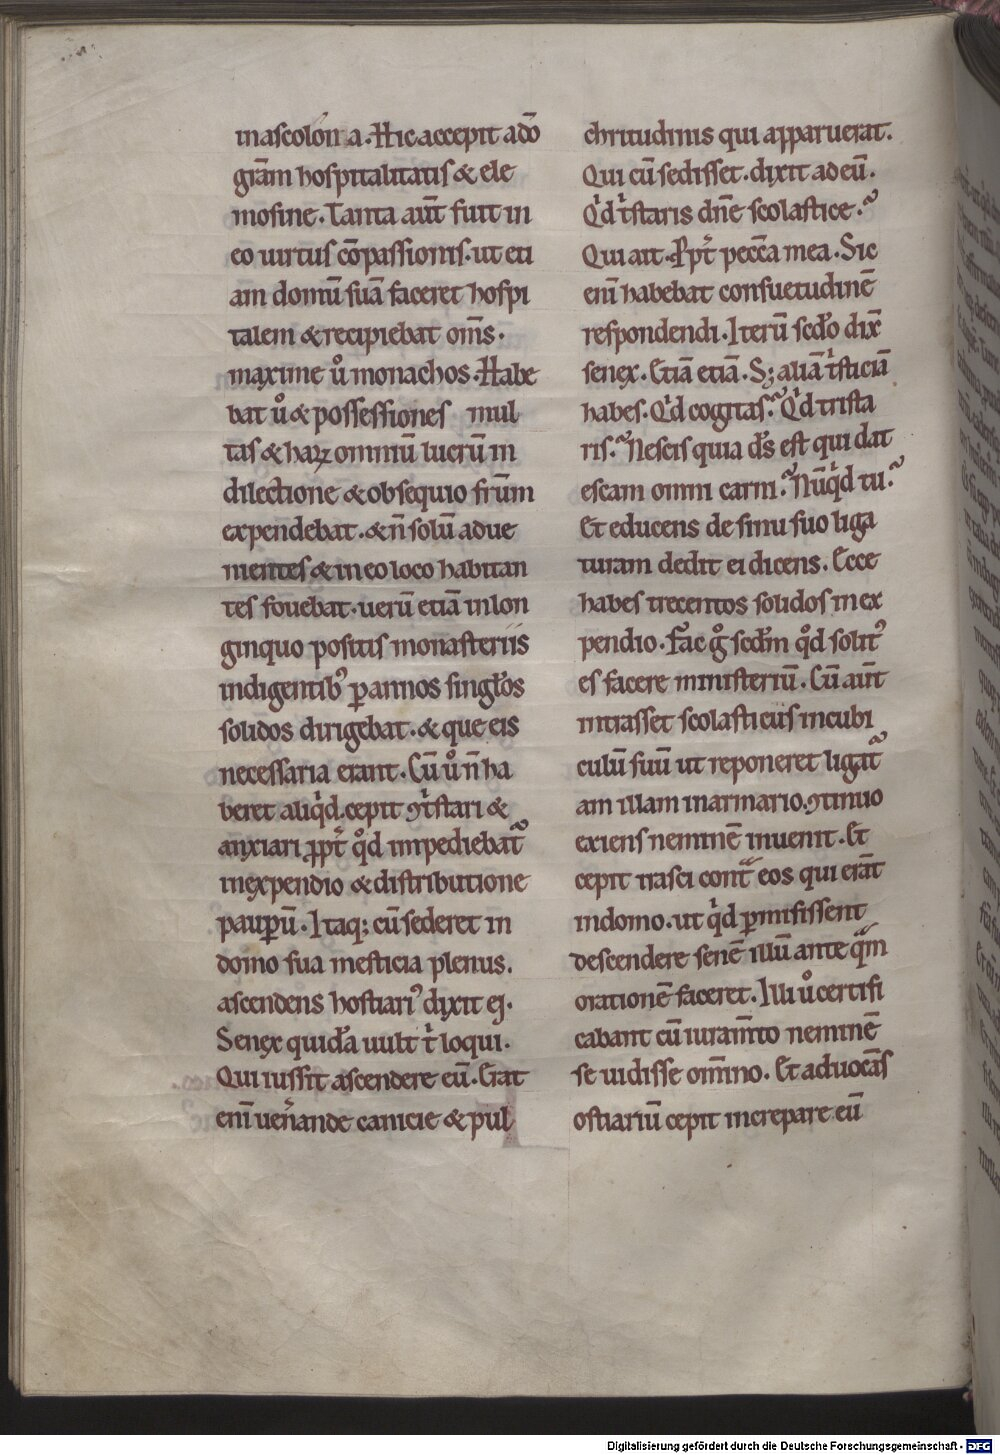 inascolon a. Hic accepit a dõ
gr̃am hospitalitatis & ele
mosine. Tanta aut̃ fuit in
eo uirtus cõpassionis. ut eti
am domũ suã faceret hospi
talem & recipiebat om̃s.
maxime uͦ monachos. Habe
bat uͦ & possessiones mul
tas & harꝝ omniũ lucrũ in
dilectione & obsequio fr̃um
expendebat. & ñ solũ adue
nientes & in eo loco habitan
tes fouebat. uerũ etiã in lon
ginquo positis monasteriis
indigentibꝰ ꝑ annos singl̃os
solidos dirigebat. & que eis
necessaria erant. Cũ uͦ ñ ha
beret aliqͥd. cepit ꝯtͥstari &
anxiari ꝓpt̃ qͦd impediebat᷑
inexpendio & distributione
pauꝑũ. Itaqꝫ cũ sederet in
domo sua mesticia plenus.
ascendens hostiariꝰ dixit ej.
Senex quidã uult tͥ loqui.
Qui iussit ascendere eũ. Erat
eni᷑ uen̾ande caniciẽ & pul
chritudinis qui apparuerat.
Qui cũ sedisset. dixit ad eũ.
Qͥd tͥstaris dñe scolastice.?
Qui ait. Ꝓpt̃ pecc̃a mea. Sic
enĩ habebat consuetudinẽ
respondendi. Iterũ sc̃do dix̃
senex. Etiã etiã. Sꝫ aliã tͥsticiã
habes. Qͥd cogitas.? Qͥd trista
ris.? Nescis quia d̃s est qui dat
escam omni carni.? Nũqͥd tu.?
Et educens de sinu suo liga
turam dedit ei dicens. Ecce
habes trecentos solidos in ex
pendio. Fac gͦ sc̃dm qͦd solitꝰ
es facere ministeriũ. Cũ aut̃
intrasset scolasticus in cubi
culũ suũ ut reponeret ligat᷑
am illam in armario. ꝯtinuo
exiens neminẽ inuenit. Et
cepit irasci contᷓ eos qui erãt
in domo. ut qͥd ꝑmisissent
descendere senẽ illũ ante qᷓm
orationẽ faceret. Illi uͦ certifi
cabant cũ iuram̃to neminẽ
se uidisse om̃ino. Et aduocãs
ostiariũ cepit increpare eũ
Digitalisierung gefördert durch die Deutsche Forschungsgemeinschaft - DFG